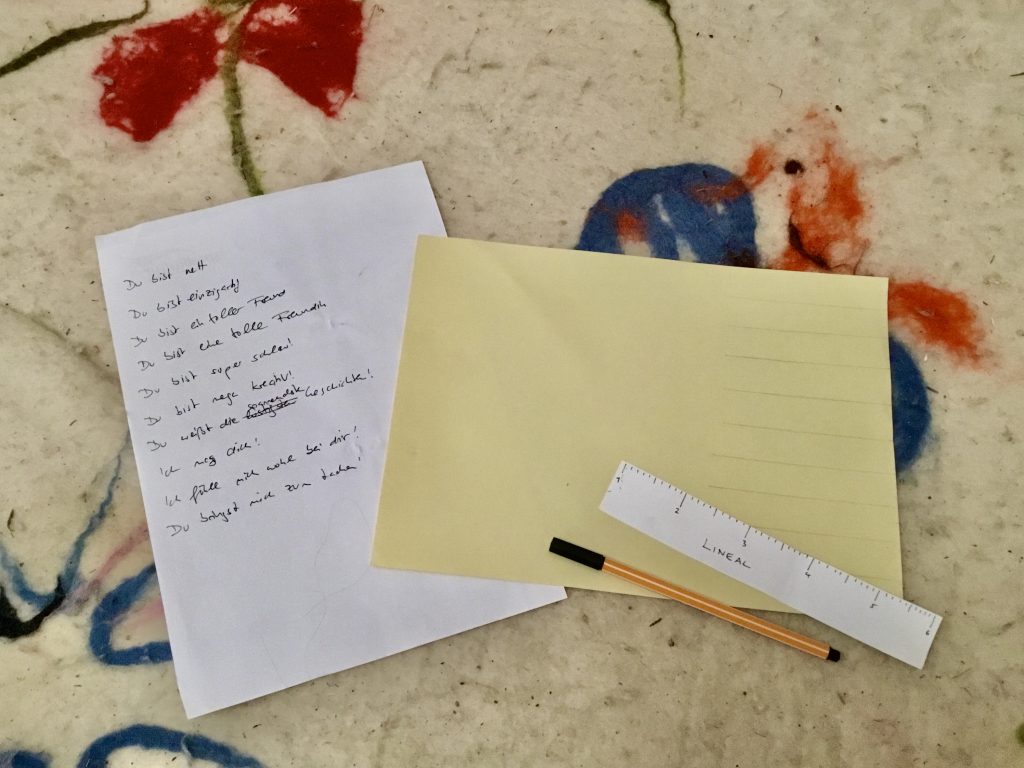 Du bist nett
Du bist einzigartig
Du bist ein toller Freund
Du bist eine tolle Freundin
Du bist super schlau!
Du bist mega kreativ!
Du weißt die spannendste Geschichten!
Ich mag dich!
Ich fühle mich wohl bei dir!
Du bringst mich zum Lachen!
1 2 3 4 5 6
LINEAL